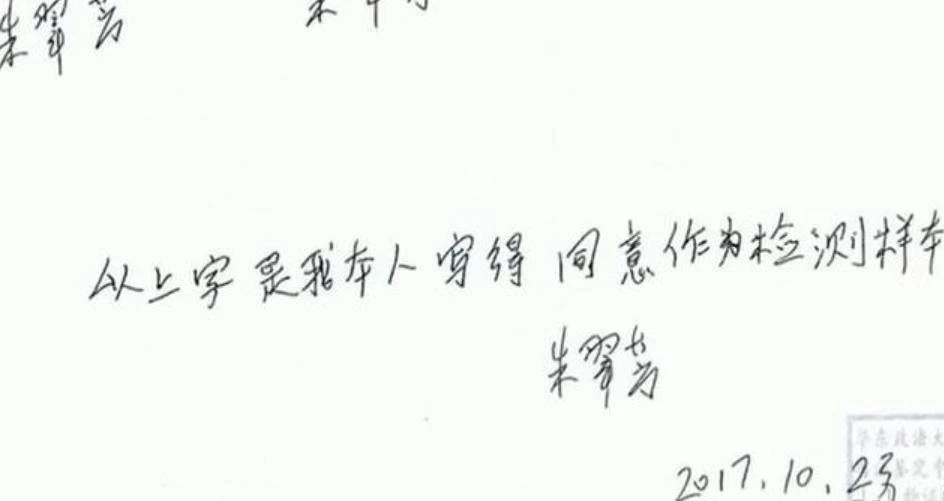 朱翠芳
以上字是我本人写得 同意作为检测样本
朱翠芳
华东政法大
鉴定
2017.10.23